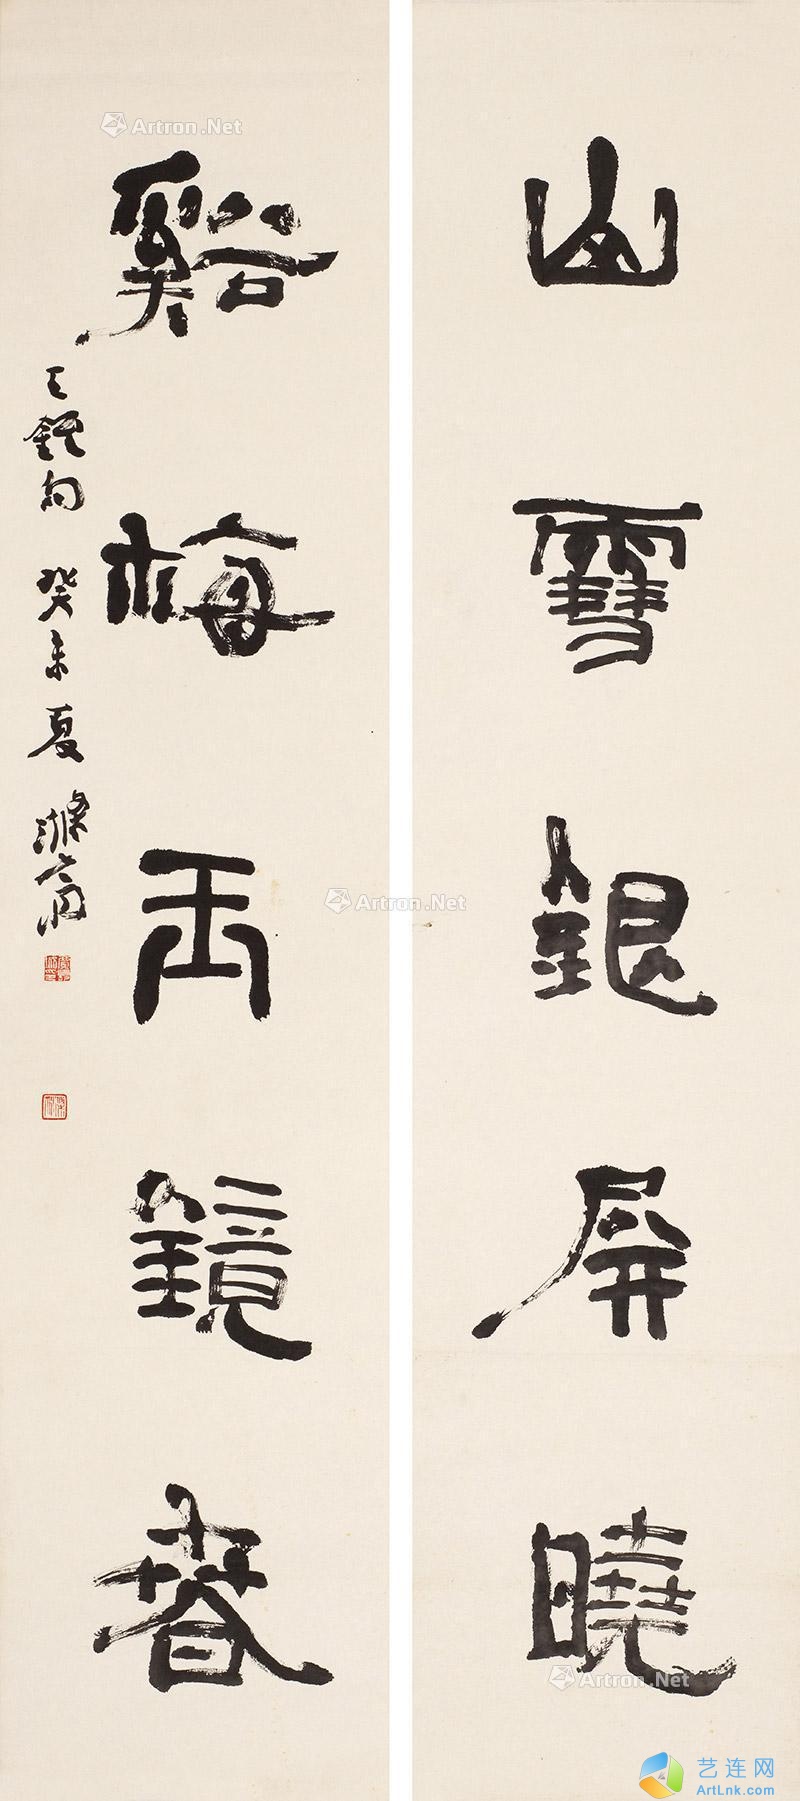 山雪銀屏曉
谿梅玉鏡春
王鐸句 癸未夏
Artron.Net
Artron.Net
Artron.Net
艺连网
ArtLnk.com